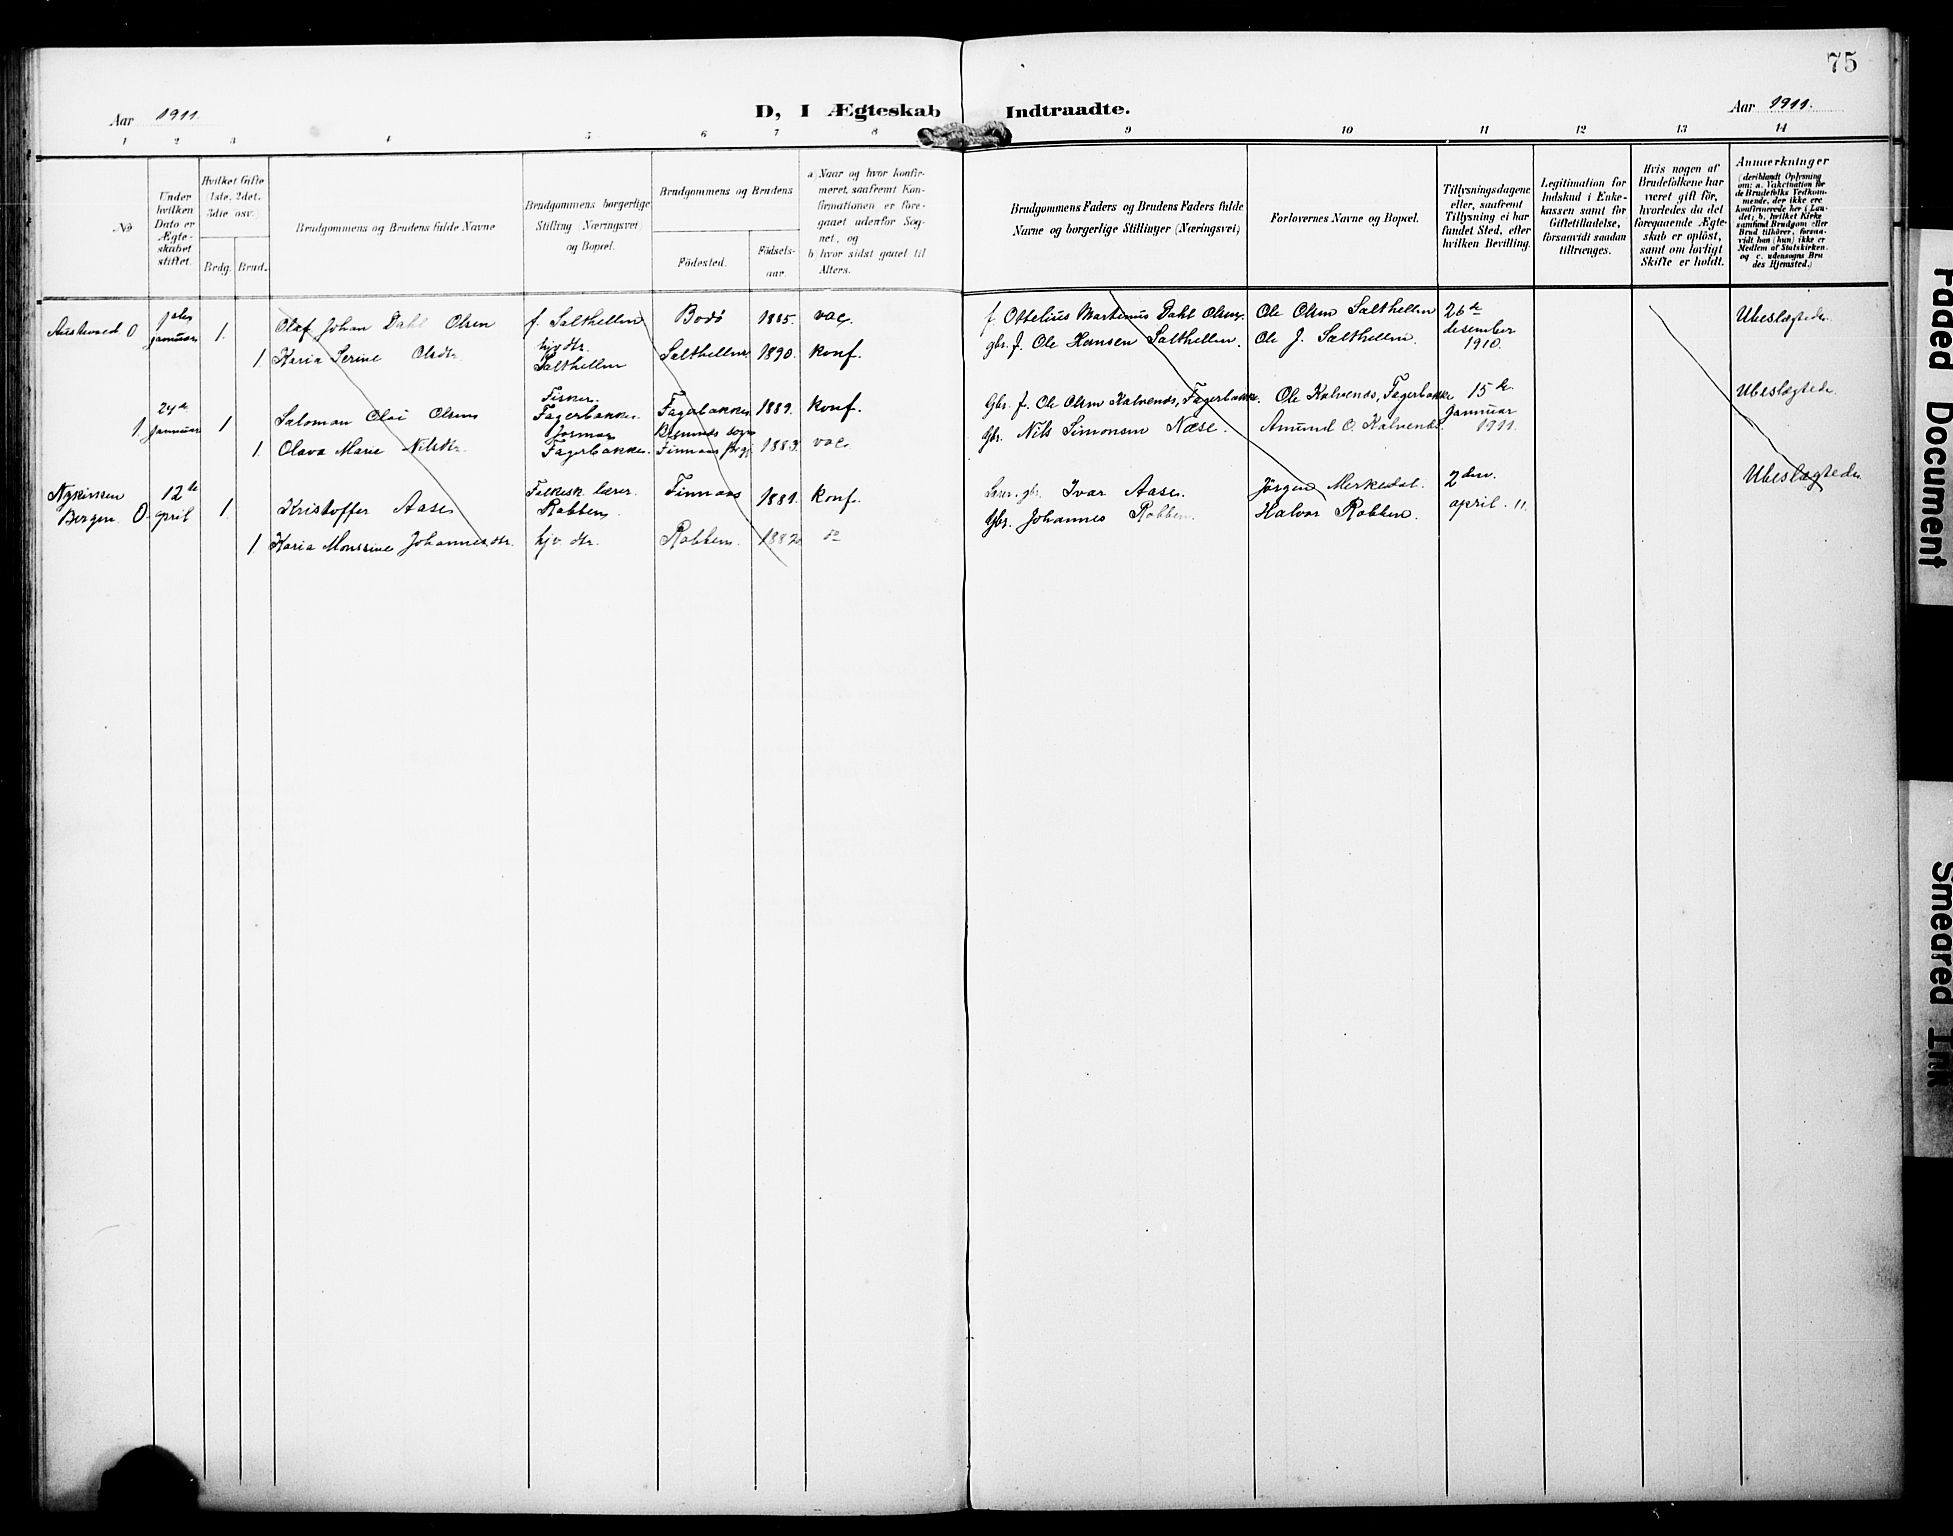 75
Aar 1911.
D, I Ægteskab Indtraadte.
Aar 1911.
1 2 3 4 5 6 7 8 9 10 11 12 13 14
No
Under hvilken Dato er Ægteskabet stiftet.
Hvilket Gifte 1ste, 2det, 3die osv.)
Brdg. Brud.
Brudgommens og Brudens fulde Navne
Brudgommens borgerlige Stilling (Næringsvei) og Bopæl.
Brudgommens og Brudens
Födested.
Födselsaar.
a) Naar og hvor konfirmeret, saafremt Konfirmationen er foregaaet udenfor Sognet, og
b) hvor sidst gaaet til Alters.
Brudgommens Faders og Brudens Faders fulde Navne og borgerlige Stillinger (Næringsvei)
Forlovernes Navne og Bopæl.
Tillysningsdagene eller, saafremt Tillysning ei har fundet Sted, efter hvilken Bevilling.
Legitimation for Indskud i Enkekassen samt for Giftetilladelse, forsaavidt saadan tiltrænges.
Hvis nogen af Brudefolkene har været gift för, hvorledes da det foregaaende Ægteskab er oplöst, samt om lovligt Skifte er holdt.
Anmærkninger
(deriblandt Oplysning om: a. Vakcination for de Brudefolks Vedkommende, der ikke ere konfirmerede her i Landet; b. hvilket Kirkesamfund Brudgom eller Brud tilhører, forsaavidt han (hun) ikke er Medlem af Statskirken, og c. udensogns Brudes Hjemsted.)
Austevold 0 januar 1. Olaf Johan Dahl Olsen f. Salthellen Bodö 1885. vac. f. Ottelius Martinus Dahl Olsen. Ole Olsen Salthellen 26de desember 1910. Ubeslægtede.
1 Karia Serine Olsdtr hjv dtr. Salthellen Salthellen 1890. konf. gbr. f. Ole Hansen Salthellen. Ole J. Salthellen.
1 24de januar 1 Salomon Olai Olsen Fisker. Fagerbakken. Fagerbakken 1889. konf. Gbr. f. Ole Olsen Kalvenes, Fagerbakke. Ole Kalvenes, Fagerbakke 15de Januar 1911. Ubeslægtede.
1. Olava Marie Nilsdtr. Fagerbakken. Bremnes sogn Finnaas prgj. 1883. vac. Gbr. Nils Simonsen Næse. Amund O. Kalvenes.
Nykirken Bergen 0. 12te april 1. Kristoffer Aase Folkesk. lærer. Rabben Finnaas 1881. konf. Lærer. gbr. Ivar Aase. Jörgen Merkedal. 2den april. 11. Ubeslægtede
1 Karia Monssine Johannesdtr. hjv. dtr. Rabben. do Gbr. Johannes Rabben. Halvor Rabben.
Faded Document
Smeared Ink